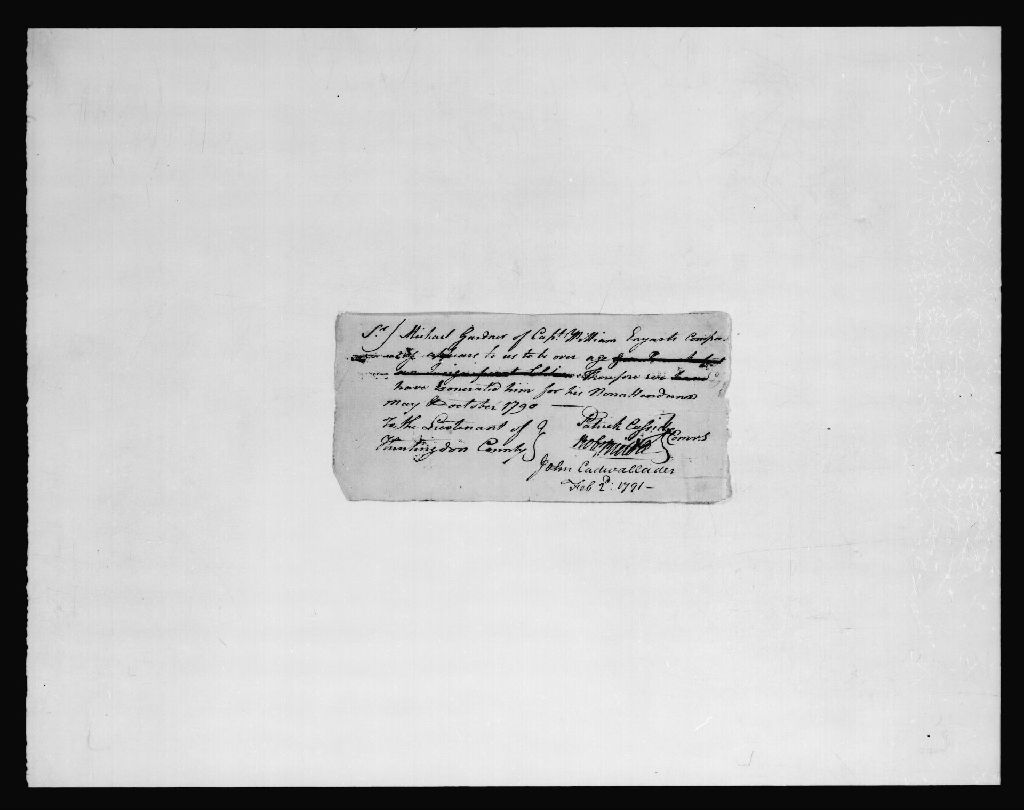 Sr / Michael Gardner of Capt. William Enyarts Compa
appears to us to be over age
Therefore we
have Exonerated him for his Nonattendance
May & October 1790 —
To the Lieutenant of
Huntingdon County
Patrick Cassidy
Comrs
John Cadwallader
Feb 2d: 1791 —